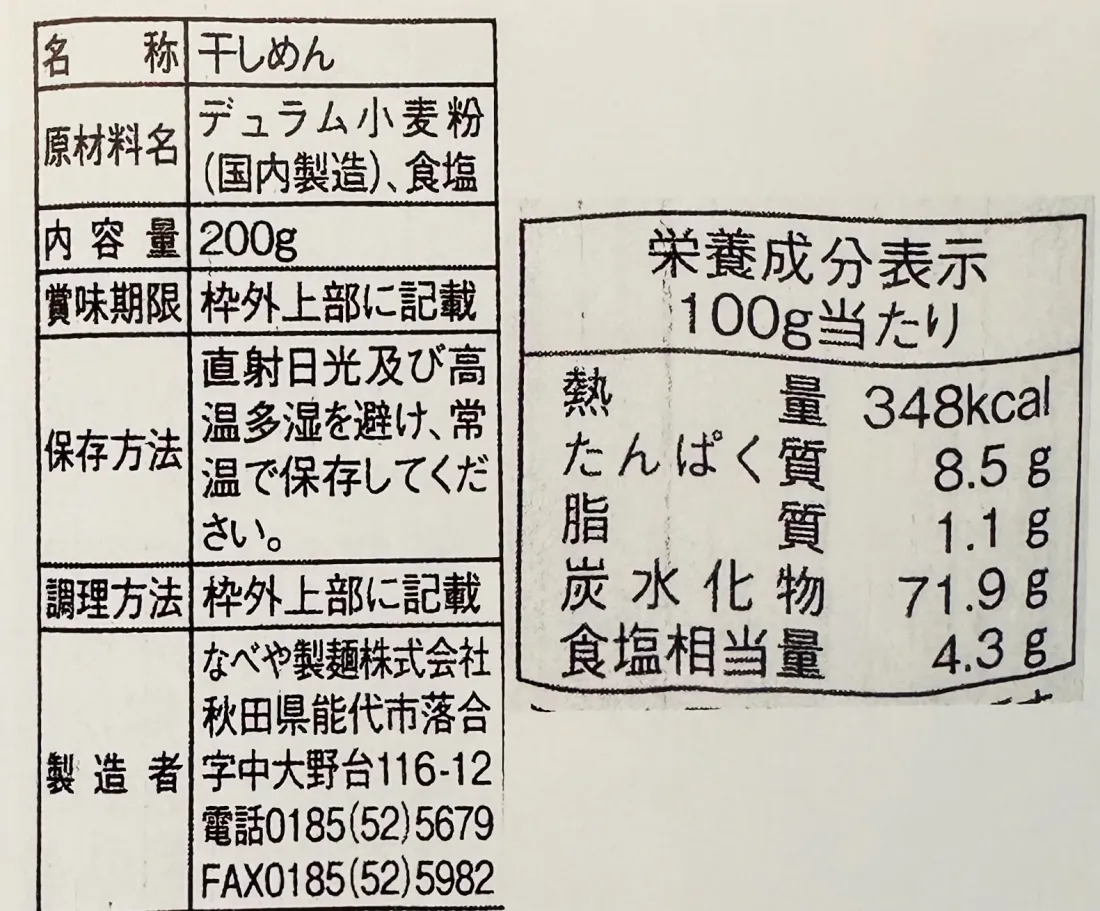 名称 干しめん
原材料名 デュラム小麦粉
(国内製造)、食塩
内容量 200g
賞味期限 枠外上部に記載
保存方法 直射日光及び高
温多湿を避け、常
温で保存してくだ
さい。
調理方法 枠外上部に記載
製造者 なべや製麺株式会社
秋田県能代市落合
字中大野台116-12
電話0185(52)5679
FAX0185(52)5982
栄養成分表示
100g当たり
熱量 348kcal
たんぱく質 8.5g
脂質 1.1g
炭水化物 71.9g
食塩相当量 4.3g